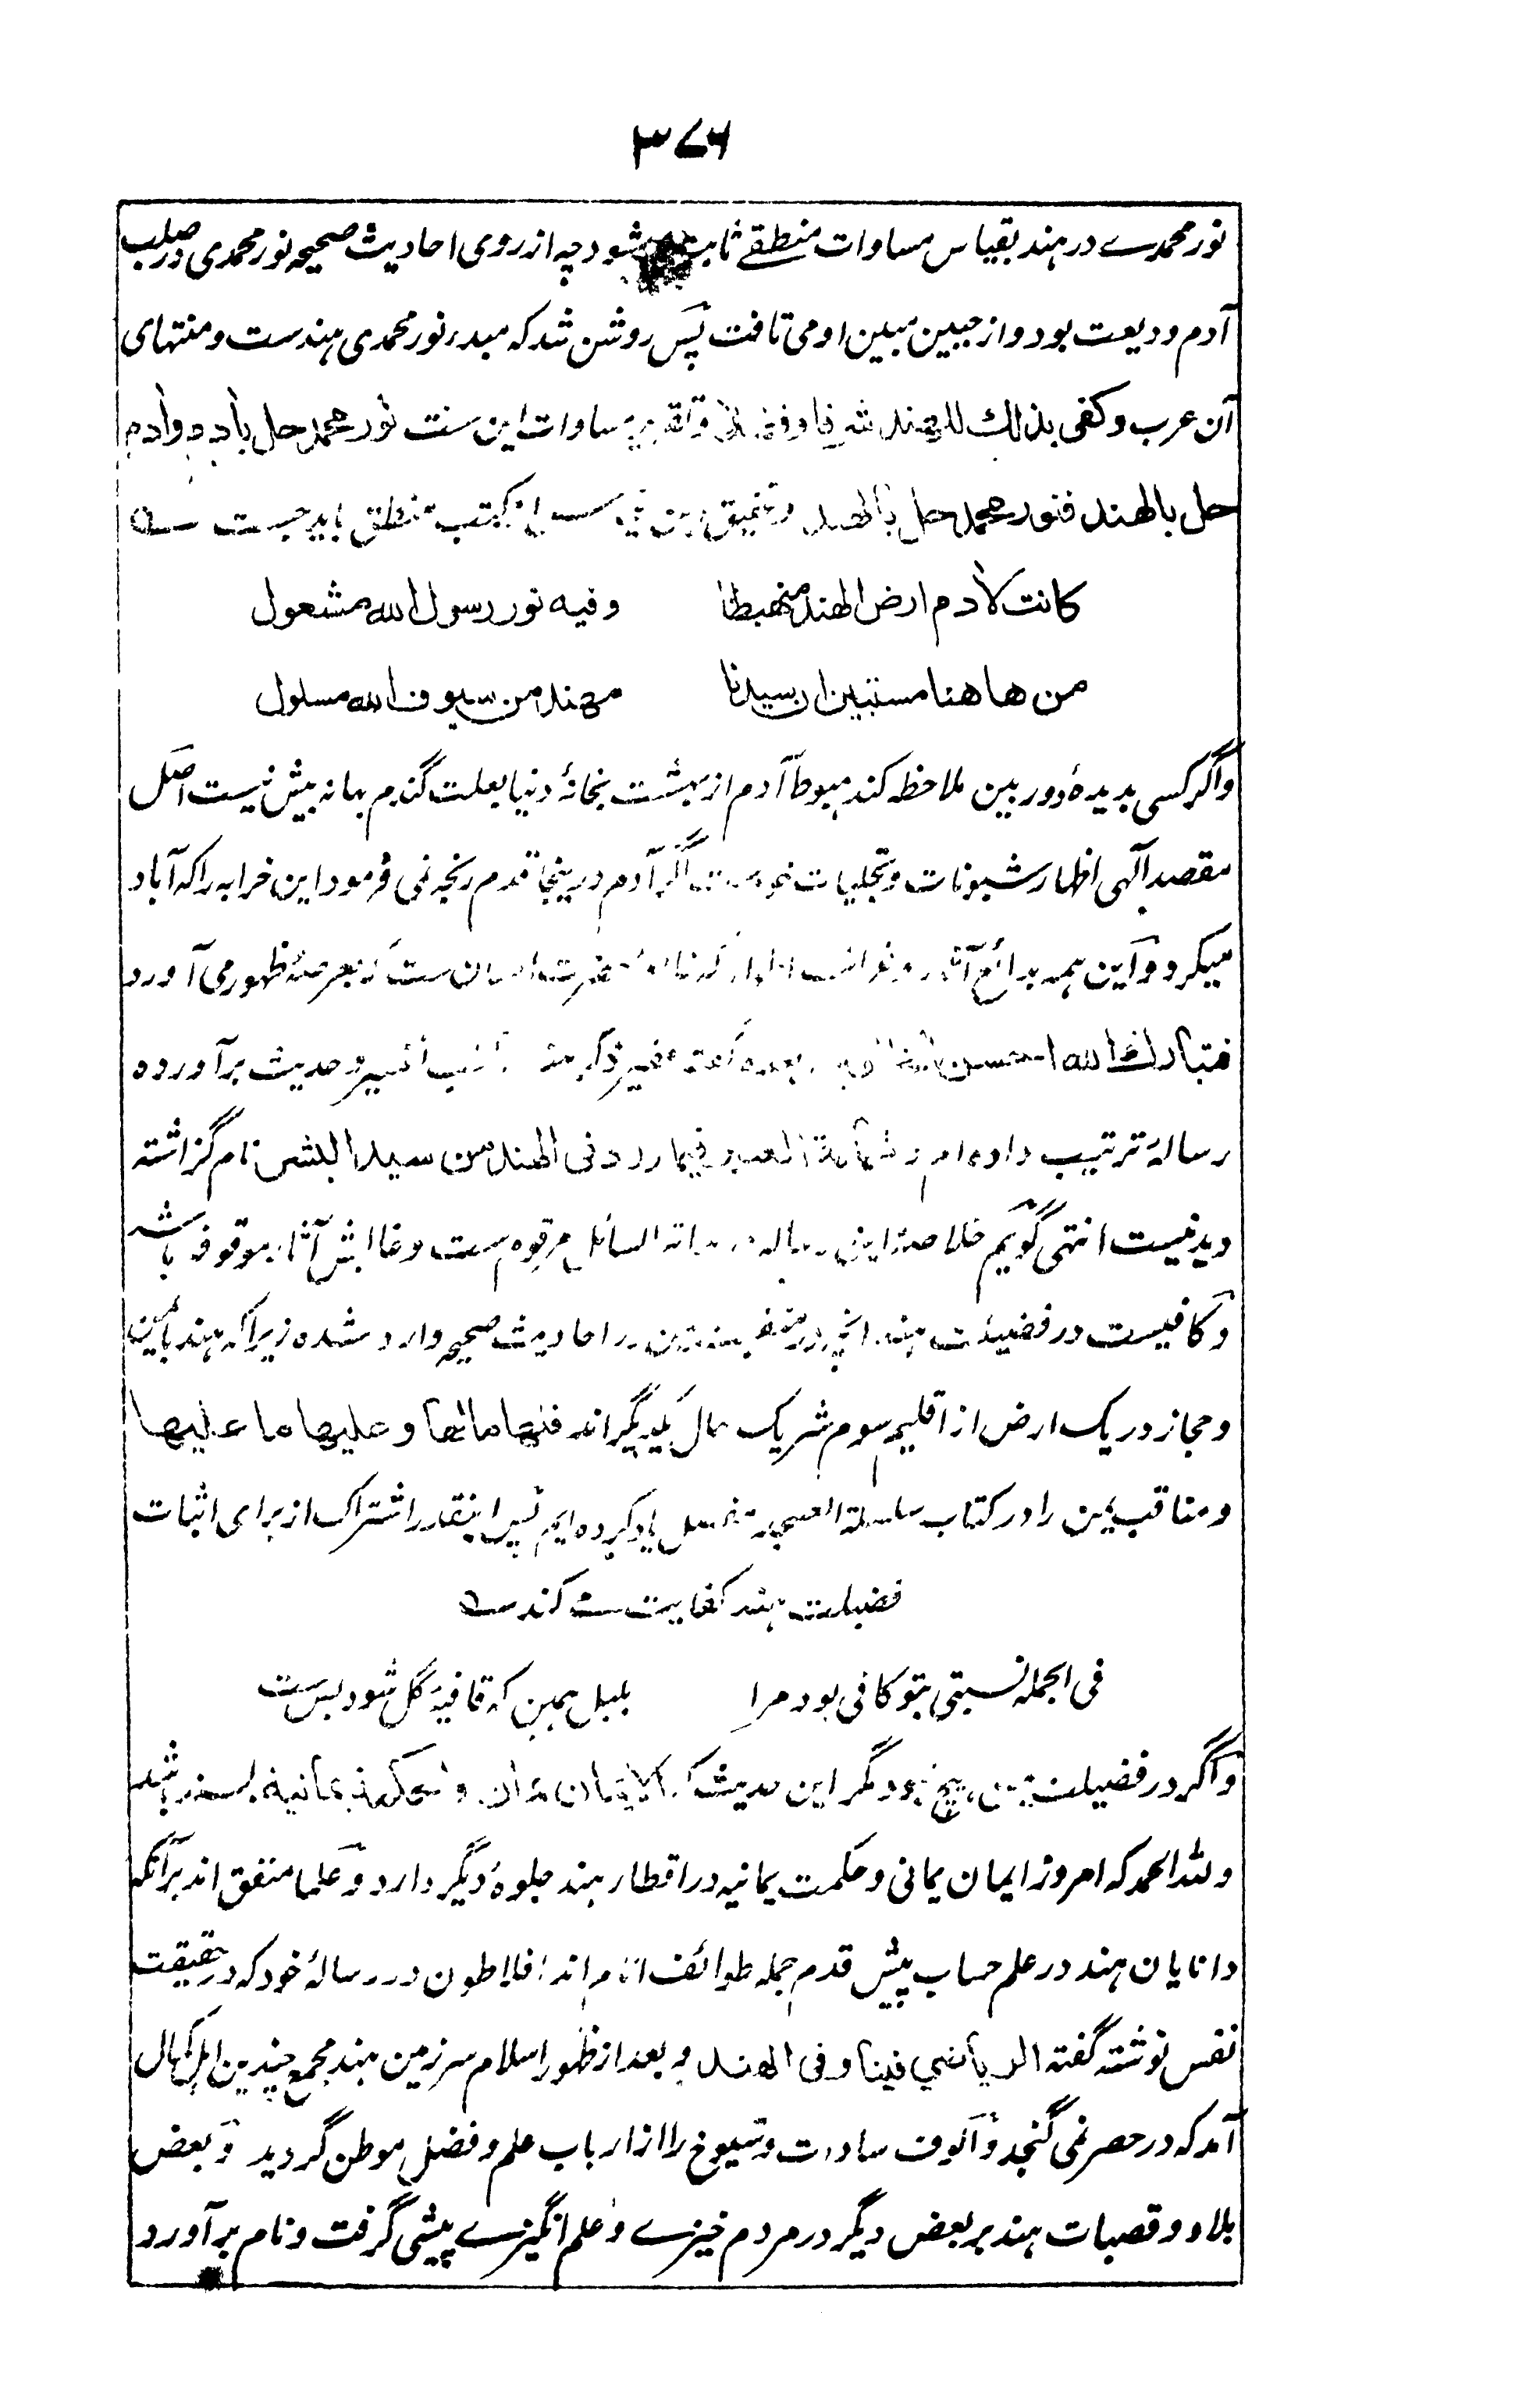 ۳۷۶
نور محمدے در ہند بقیاس مساوات منطقے ثابت شود چہ از روی احادیث صحیحہ نور محمدی در صلب
آدم ودیعت بود و از جبین مبین او می تافت پس روشن شد کہ مبدء نور محمدی ہندست و منتهای
آن عرب وکفی بذلك للهند شرفا مساوات این ست نور محمد حل بآدم وآدم
حل بالهند فنور محمد حل بالهند از کتب منطق باید جست ے
کانت لآدم ارض الهند منهبطا وفیه نور رسول الله مشعول
من هاهنا مستبین ان سیدنا مهند من سیوف الله مسلول
واگر کسی بدیدۂ دوربین ملاحظہ کند ہبوط آدم از بہشت بخانۂ دنیا بعلت گندم بہانہ بیش نیست اصل
مقصد آلہی اظہار شیونات و تجلیات اگر آدم درینجا قدم رنجہ نمی فرمود این خرابہ را کہ آباد
میکرد و این ہمہ بدائع آثار و کہ بعرصۂ ظہور می آورد
فتبارك الله احسن الخالقین تفسیر و حدیث برآوردہ
رسالۂ ترتیب دادہ ام و شمامة العنبر فیما ورد فی الهند من سید البشر نام گزاشتہ
دیدنیست انتهی گویم خلاصۂ این رسالہ السائل مرقوم ست و غالبش آثار موقوفہ باشد
و کافیست در فضیلت ہند انچہ در احادیث صحیحہ وارد شدہ زیرا کہ ہند با یمن
و حجاز در یک ارض از اقلیم سوم شریک حال یکدیگر اند فلها مالها وعلیها ما علیها
و مناقب یمن را در کتاب سلسلة العسجد مفصل یاد کردہ ایم پس اینقدر اشتراک از برای اثبات
فضیلت ہند کفایت ست کند ے
فی الجملہ نسبتی بتو کافی بود مرا بلبل ہمین کہ قافیۂ گل شود بس ست
و اگر در فضیلت یمن ہیچ نبود مگر این حدیث کہ الایمان یمان والحکمة یمانیة باشد
وللہ الحمد کہ امروز ایمان یمانی و حکمت یمانیہ در اقطار ہند جلوۂ دیگر دارد و علما متفق اند برآنکہ
دانایان ہند در علم حساب پیش قدم جملہ طوائف انام اند افلاطون در رسالۂ خود کہ در حقیقت
نفس نوشتہ گفتہ الریاضی فینا وفی الهند و بعد از ظہور اسلام سرزمین ہند مجمع چندین اہل کمال
آمد کہ در حصر نمی گنجد و الوف سادات و شیوخ را از ارباب علم و فضل موطن گردید و بعض
بلاد و قصبات ہند بر بعض دیگر در مردم خیزے و علم انگیزے پیشی گرفت و نام برآورد